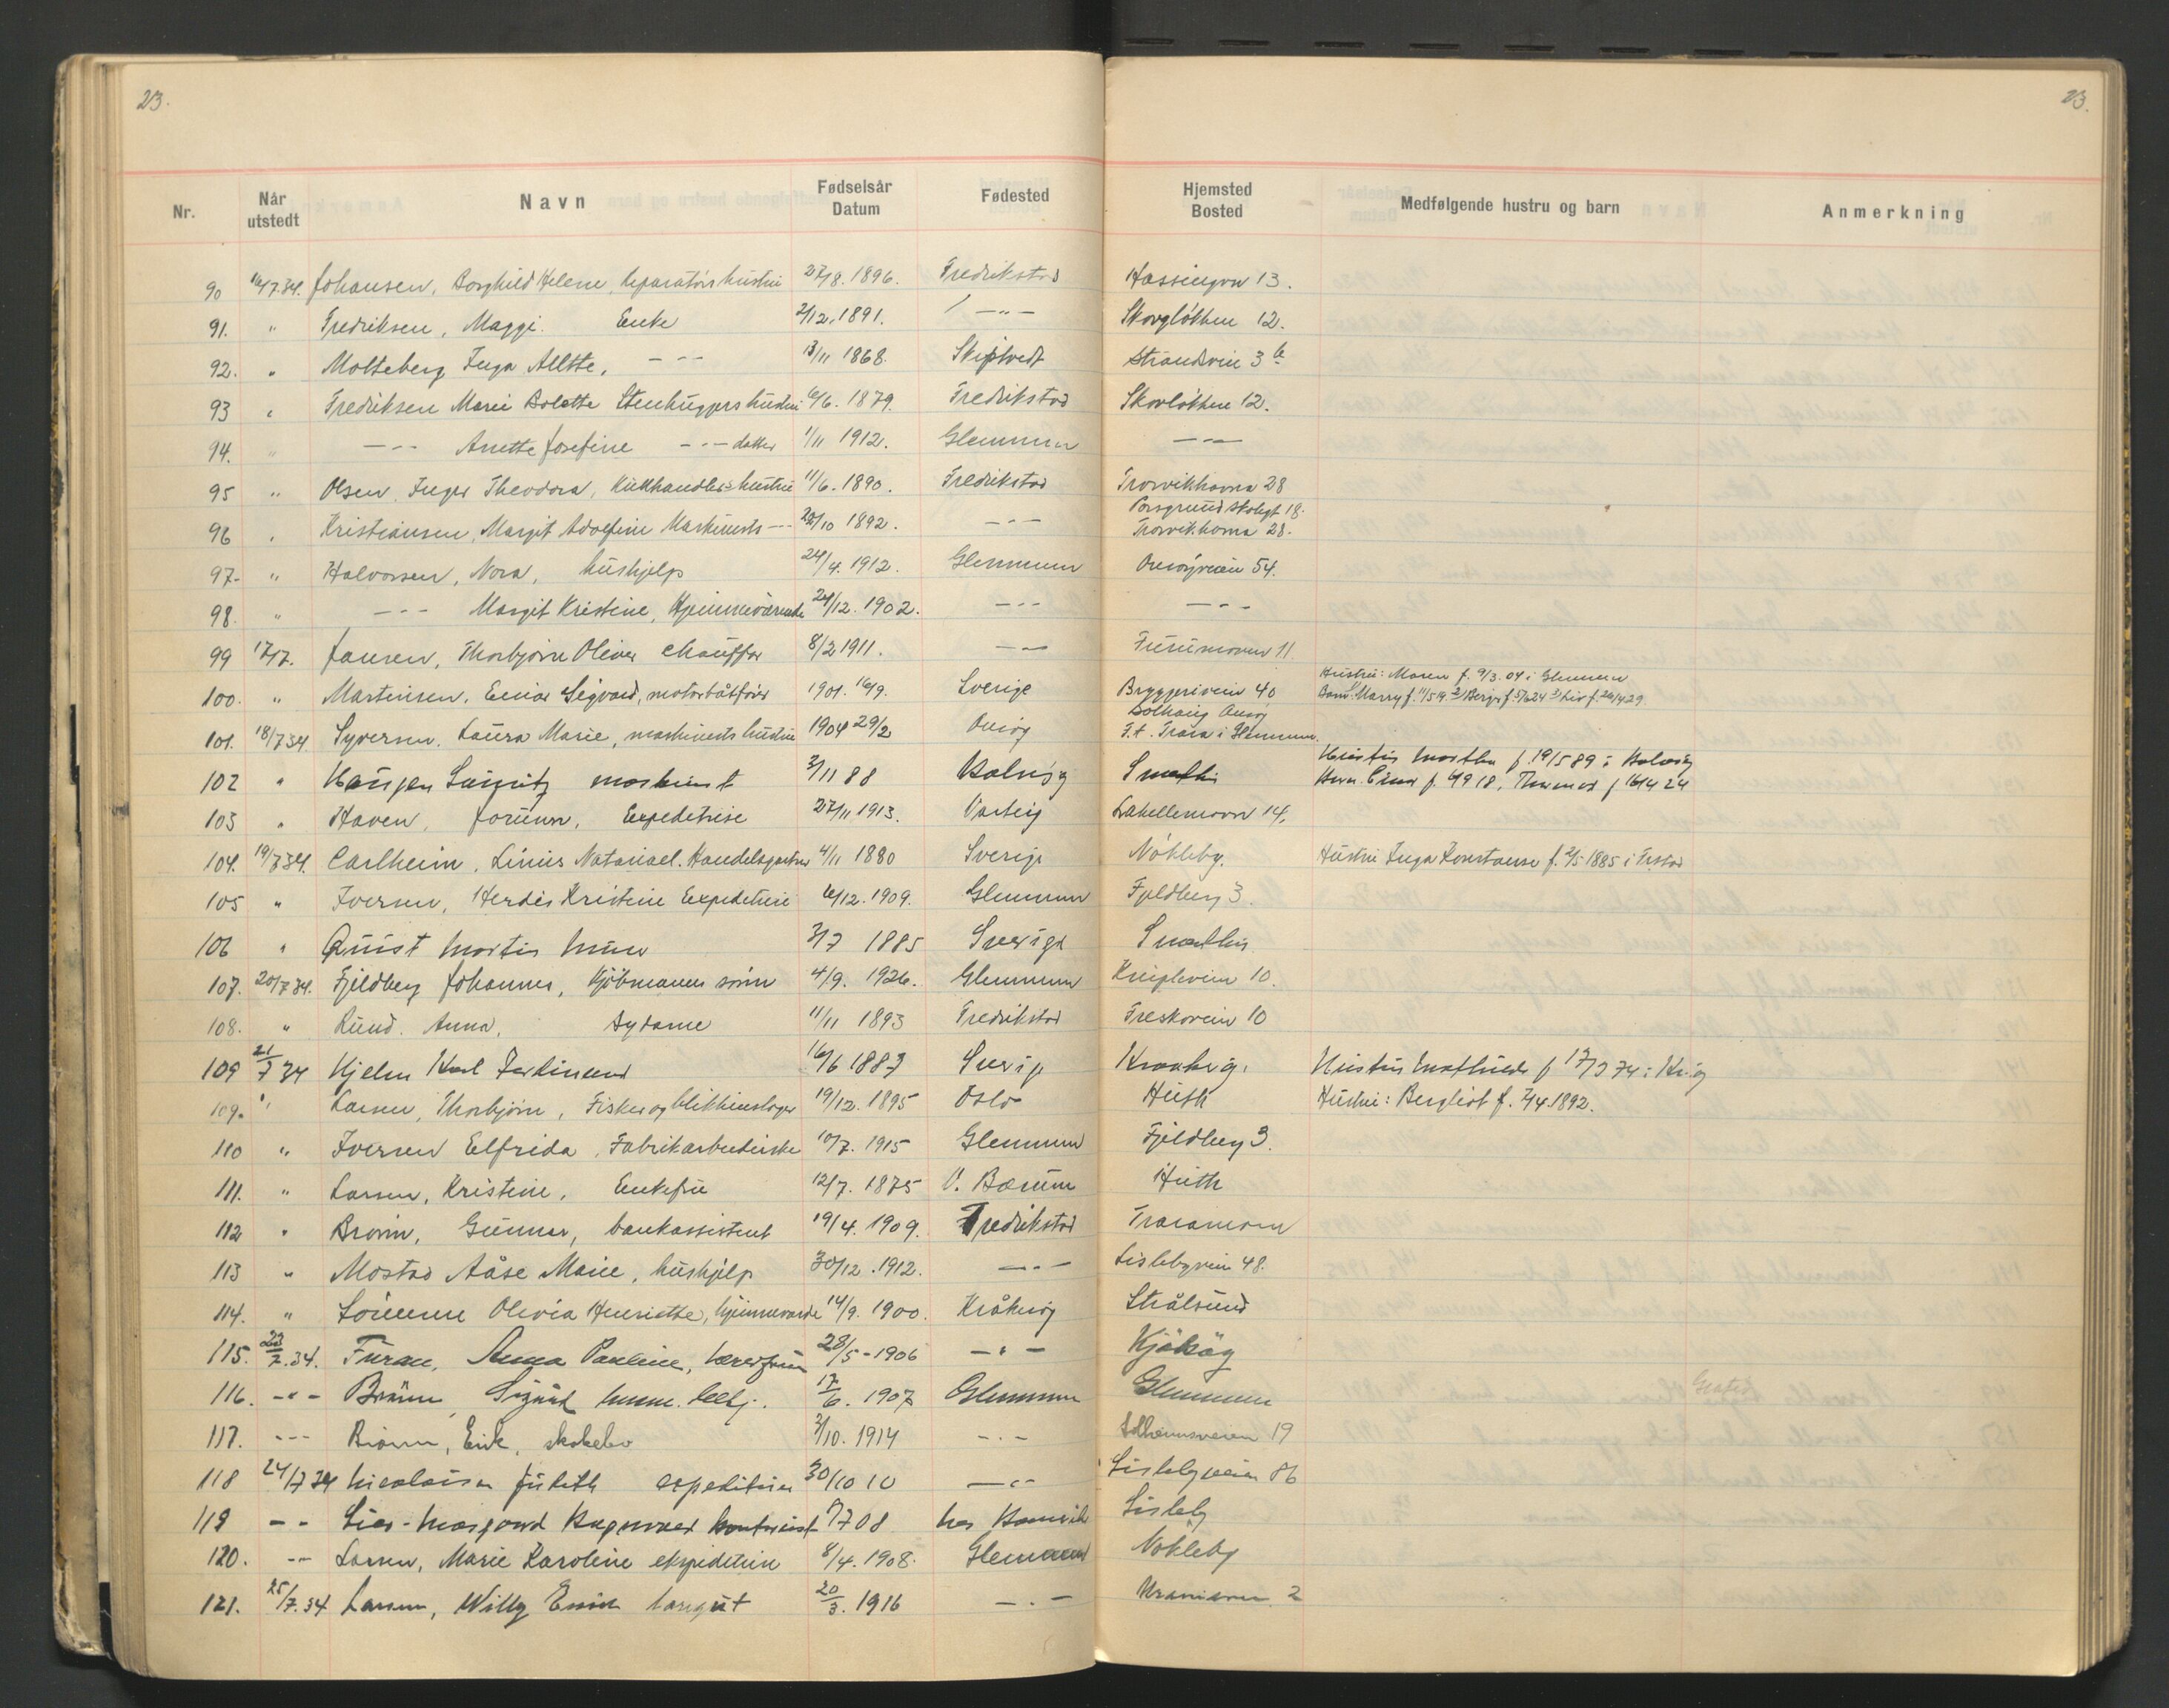 23.
23.
Nr. Når utstedt Navn Fødselsår Datum Fødested Hjemsted Bosted Medfølgende hustru og barn Anmerkning
90 16/7.34. Johansen, Borghild Helene, reparatørs hustru 27/8. 1896. Fredrikstad Hassingvn 13.
91. " Fredriksen, Maggi. Enke 2/12. 1891. —"— Skovløkken 12.
92. " Molteberg Inga —"— 13/11 1868. Skiptvedt Strandvein 3 b
93 " Fredriksen Marie Bolette Stenhuggers hustru 6/6. 1879. Fredrikstad Skovløkken 12.
94. " —"— Anette Josefine —"— datter 1/11 1912. Glemmen —"—
95 " Olsen, Inger Theodora, Kullhandlers hustru 11/6. 1890. Fredrikstad Trosvikhavna 28
96 " Kristiansen, Margit Adolfine Maskinists —"— 20/10 1892. —"— Porsgrund skolegt 18. Trosvikhavna 28.
97. " Halvorsen, Nora, hushjelp 24/4. 1912. Glemmen Onsøyveien 54.
98. " —"— Margit Kristine, Hjemmeværende 24/12. 1902. —"— —"—
99 17/7. Jansen, Thorbjørn Oliver chauffør 8/2 1911. —"— Furumoven 11
100. " Martinsen, Einar Sigvard, motorbåtfører 1901. 16/9. Sverige Bryggeriveien 40 Hustru: Maren f. 9/3. 04 i Glemmen
Barn: Marry f. 11/5 19. 2) Berger f. 5/6 24 3) Liv f. 26/4 29
101. 18/7 34 Syversen, Laura Marie, maskinists hustru 1904 29/2 Onsøy Solhaug Onsøy
F.t. Trara i Glemmen.
102 " maskinist 3/11 88 Smertu Hustru Martha f. 19/5 89 i
Barn. Einar f. 4/9 18, f 16/4 24
103 " Haven, Jorunn, Expeditrise 27/11 1913. Varteig Lahellemoven 14.
104. 19/7 34. Carlheim, Linus Natanael. Handelsgartner 4/11 1880 Sverige Nøkleby. Hustru Inga Konstanse f. 2/5 1885 i Frstad
105 " Iversen, Herdis Kristine Expeditrise 6/12. 1909. Glemmen Fjeldberg 3.
106 " Quist Martin Murer 3/7 1885 Sverige Smertu
107. 20/7 34. Fjeldberg Johannes, Kjøbmanns sønn 4/9. 1926. Glemmen 10.
108. " Rund. Anna, Sydame 11/11 1893 Fredrikstad Freskovein 10
109 21/7 34 Hjelm Karl Ferdinand 16/6 1883 Sverige Kraakerøy. Hustru Mathilde f 17/3 74 i Kr.øy
109a " Larsen, Thorbjørn, Fisker og blikkenslager 19/12. 1895 Oslo Huth Hustru: Bergliot f. 7/4 1892.
110 " Iversen Elfrida, Fabrikarbeiderske 10/7. 1915 Glemmen Fjeldberg 3.
111. " Larsen, Kristine, Enkefru 12/7. 1875 V. Bærum Huth
112 " Gunnar, bankassistent 19/4. 1909. Fredrikstad Traramoen
113 " Mostad Aåse Marie, hushjelp 30/12. 1912. —"— Lislebyvein 48.
114. " Olivia Henriette, hjemmeværende 14/9. 1900. Kråkerøy Strålsund
115. 23/7. 34. Anna Pauline, 28/5 - 1906 —"— Kjøkøy
116. —"— Sigurd 17/6. 1907 Glemmen Glemmen
117. —"— Erik, 2/10. 1914 —"— Solheimsveien 19
118 24/7 34 Nicolaisen Judith expeditrise 30/10 10 —"— Lislebyveien 86
119 —"— 7 08 Lisleby
120. —"— Larsen, Marie Karoline ekspeditrise 8/4. 1908. Glemmen Nøkleby
121. 25/7. 34 Larsen, Willy 20/3. 1916 —"— 2